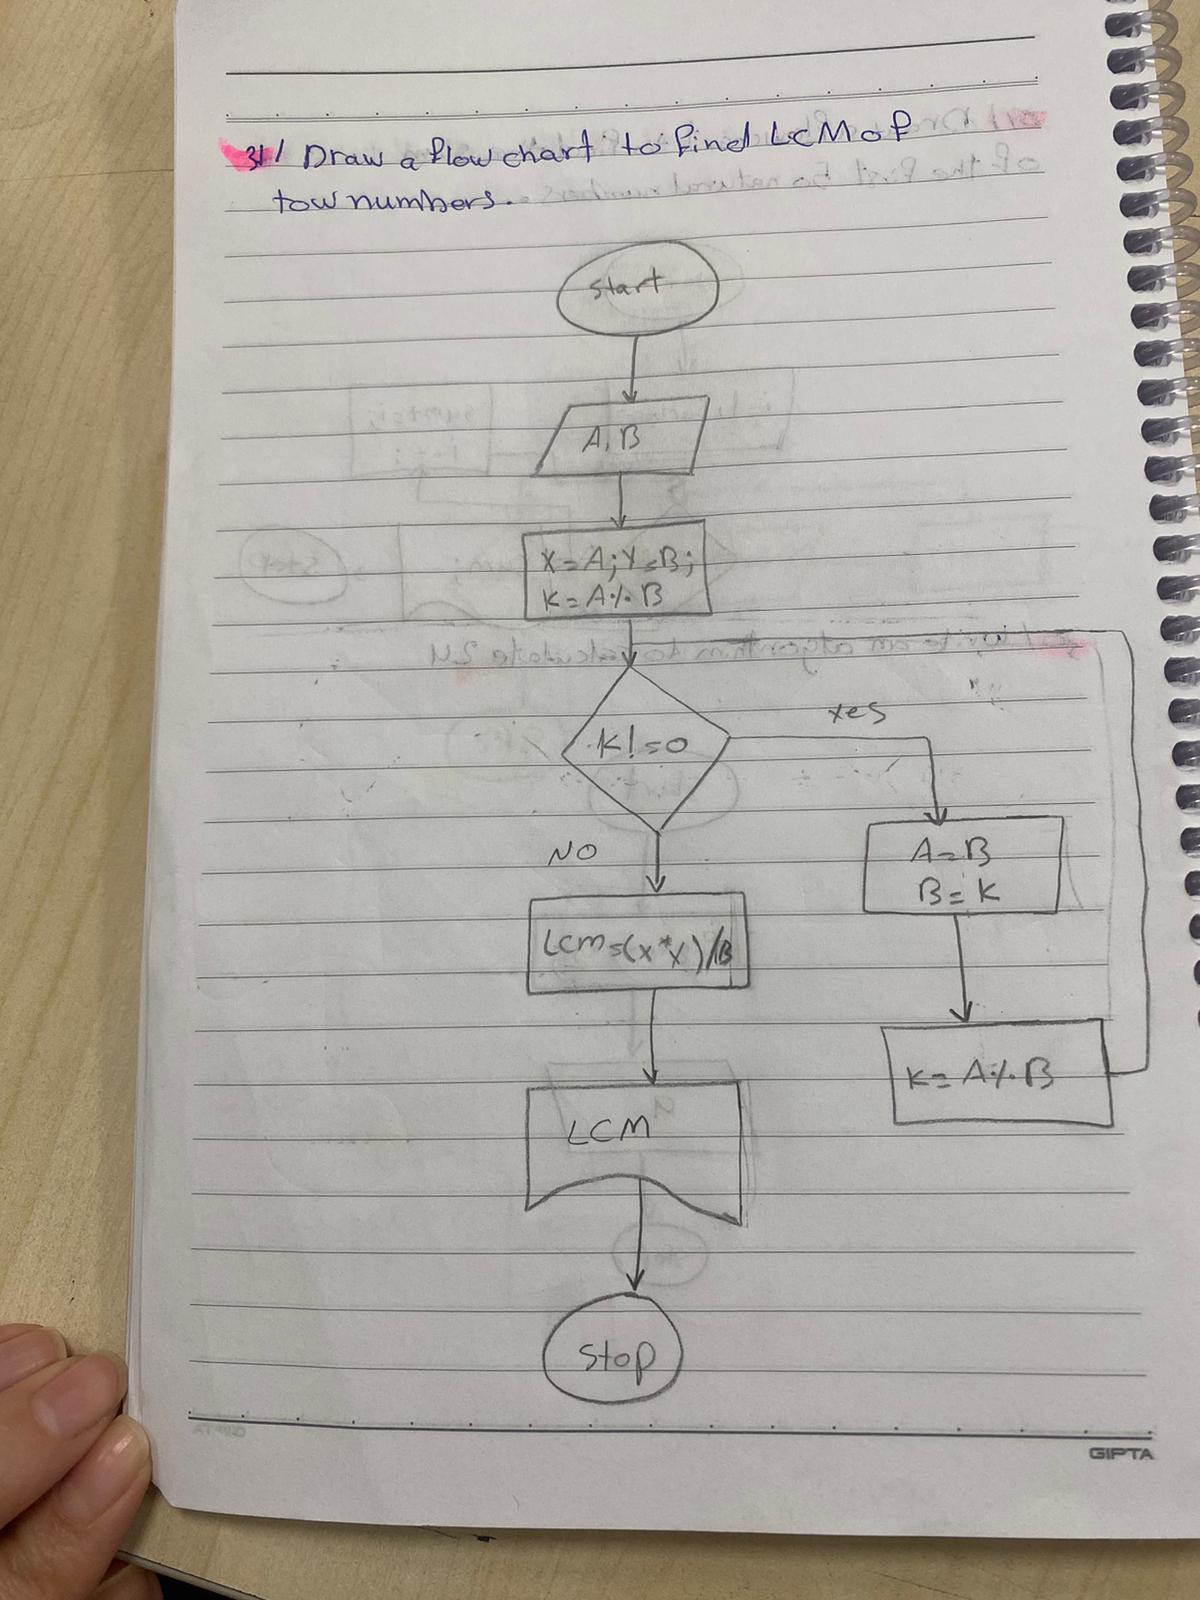 31/ Draw a flow chart to find LCM of
tow numbers.
start
A, B
X=A; Y=B;
K=A%B
K!=0
yes
NO
A=B
B=K
LCM=(X*Y)/B
K=A%B
LCM
stop
GIPTA